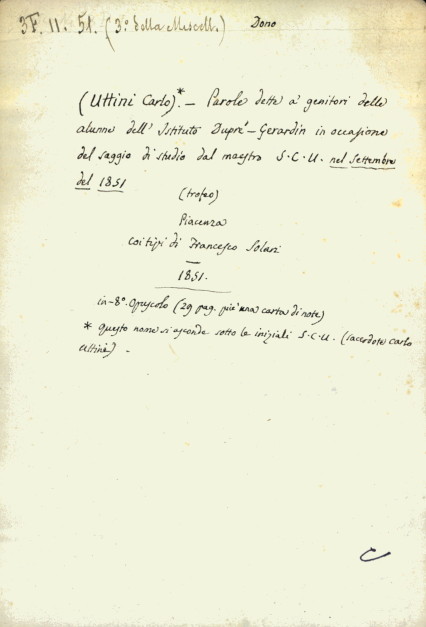 3F. 11. 51. (3º della Miscell.) Dono
(Uttini Carlo)*. — Parole dette a' genitori delle
alunne dell' Istituto Dupré - Gerardin in occasione
del saggio di studio dal maestro S. C. U. nel Settembre
del 1851
(trofeo)
Piacenza
coi tipi di Francesco Solari
1851.
in-8º. Opuscolo (29 pag. più una carta di note)
* questo nome si asconde sotto le iniziali S. C. U. (sacerdote Carlo
Uttini) .
C